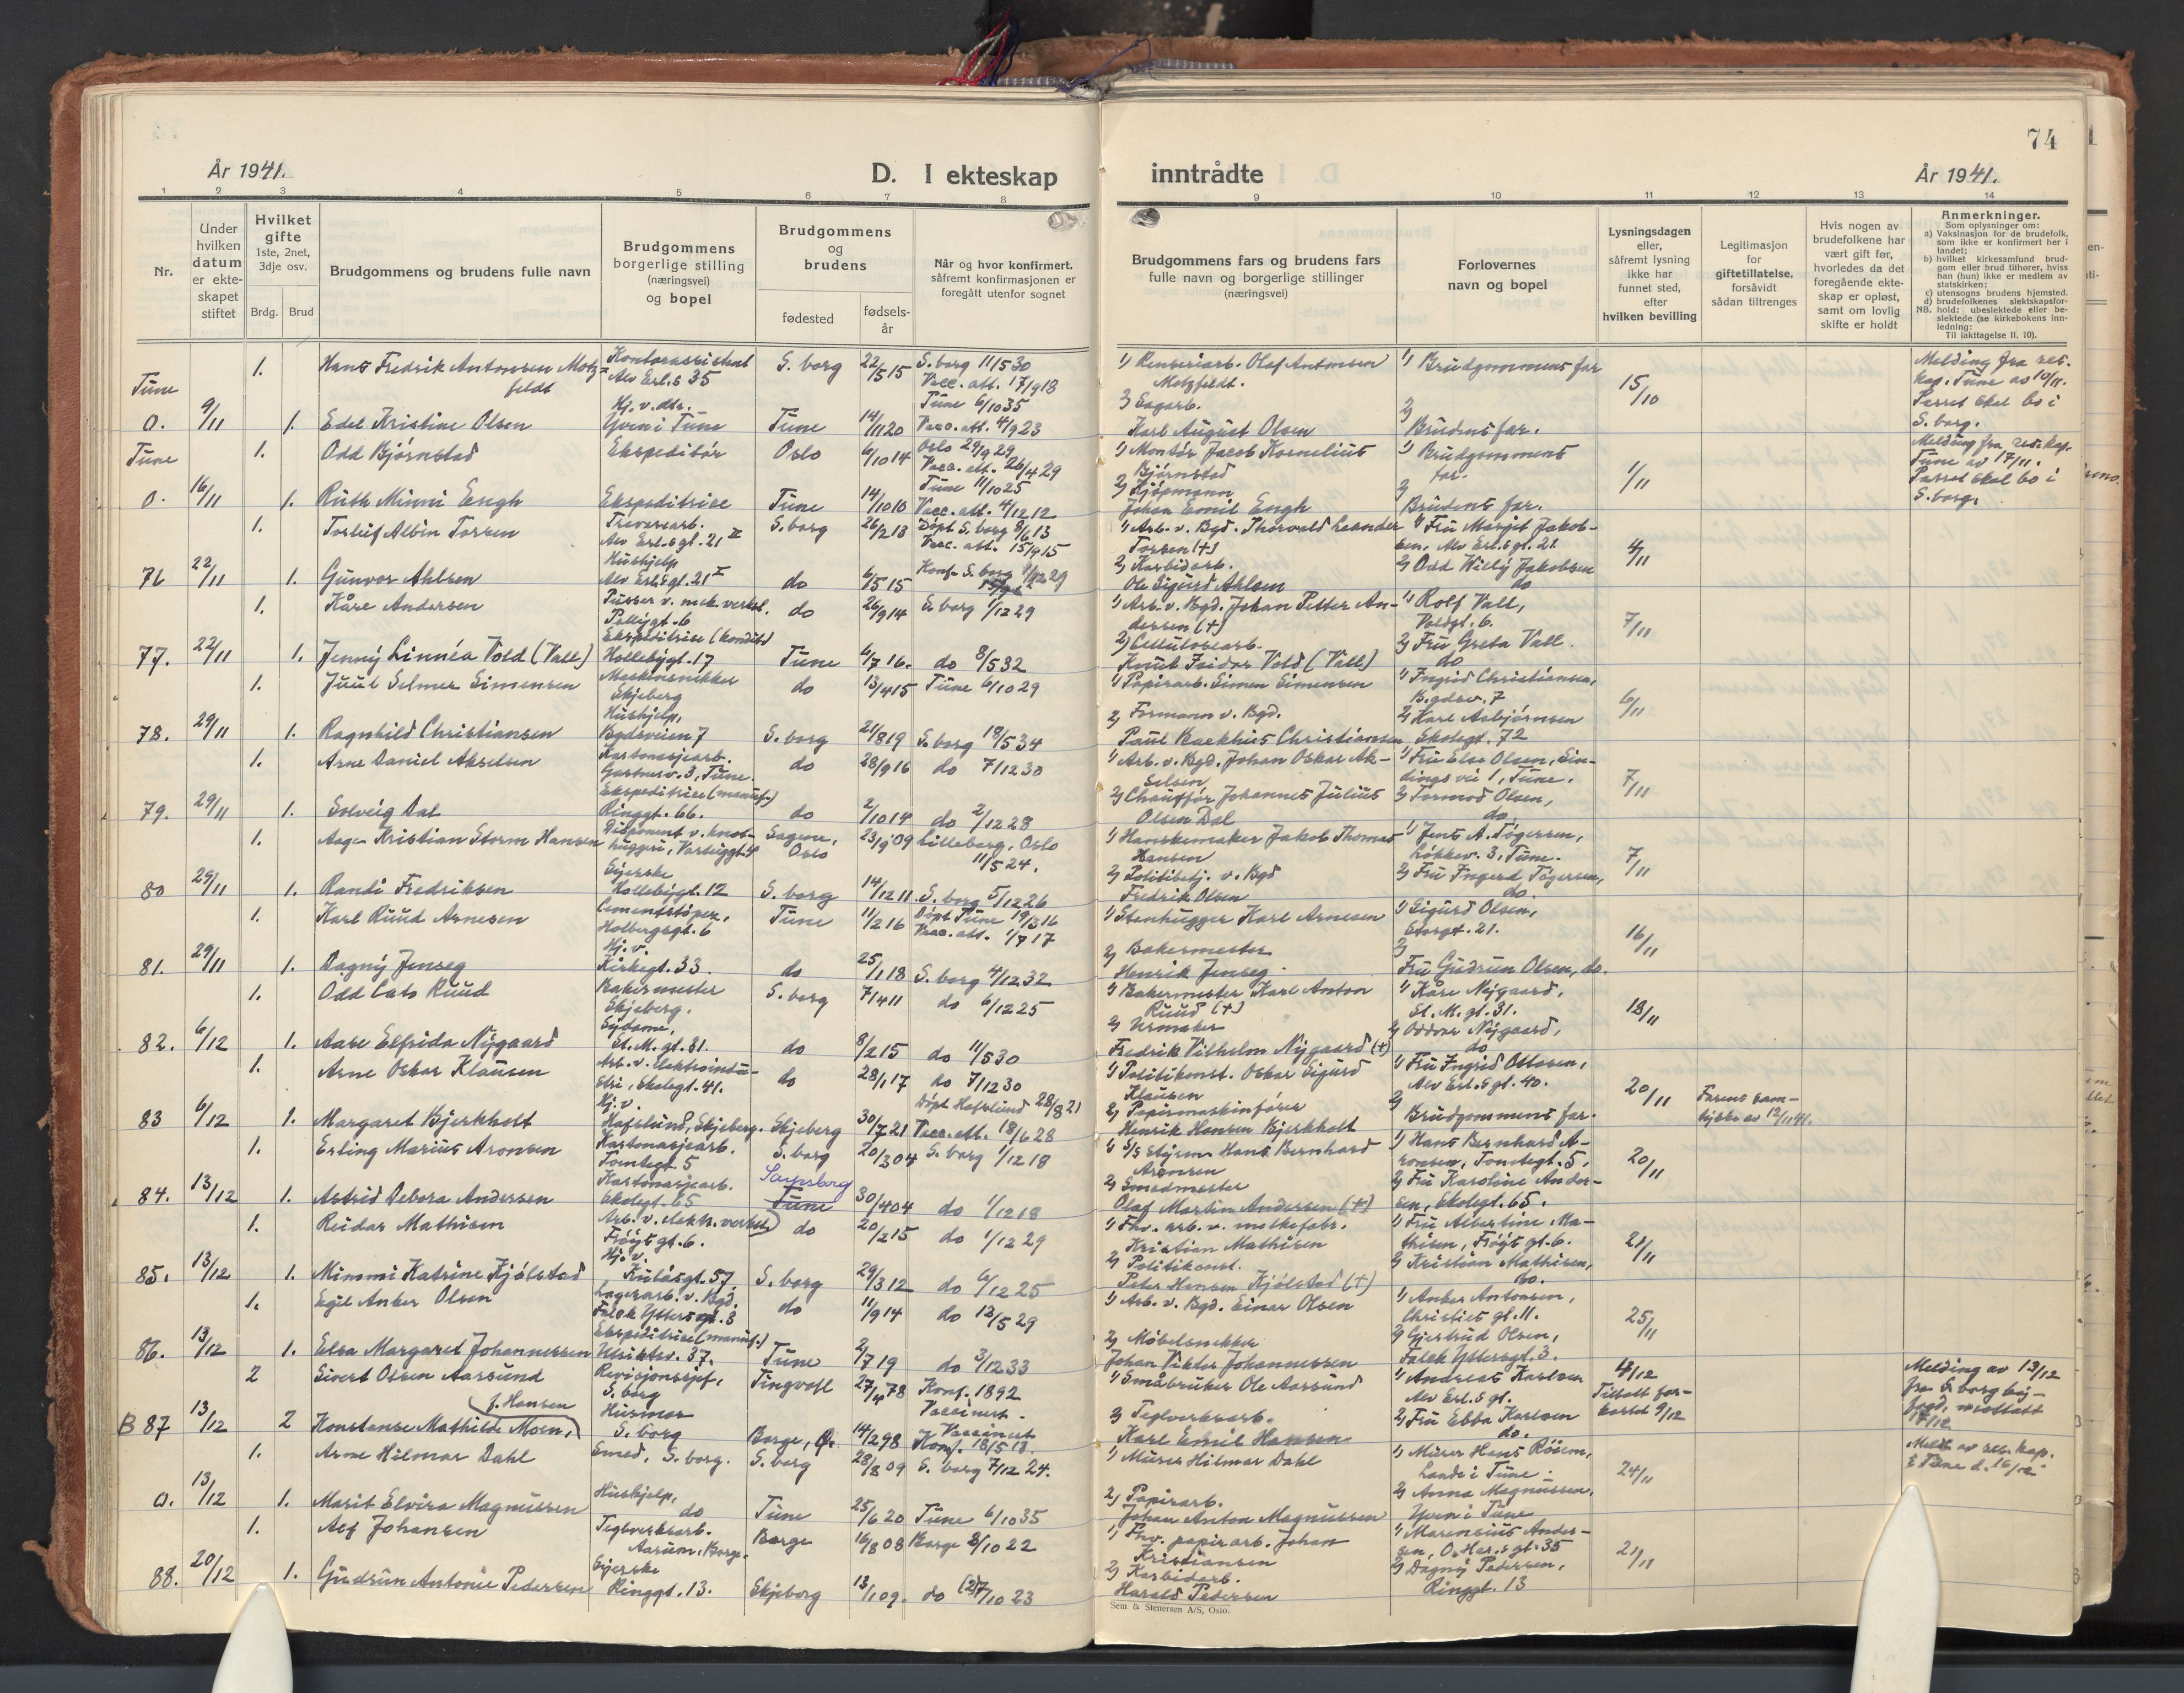 74
År 1941.
D. I ekteskap
inntrådte
År 1941.
1 2 3 4 5 6 7 8 9 10 11 12 13 14
Nr.
Under hvilken datum er ekteskapet stiftet
Hvilket gifte 1ste, 2net, 3dje osv.
Brdg. Brud
Brudgommens og brudens fulle navn
Brudgommens borgerlige stilling (næringsvei) og bopel
Brudgommens og brudens
fødested
fødselsår
Når og hvor konfirmert, såfremt konfirmasjonen er foregått utenfor sognet
Brudgommens fars og brudens fars fulle navn og borgerlige stillinger (næringsvei)
Forlovernes navn og bopel
Lysningsdagen eller, såfremt lysning ikke har funnet sted, efter hvilken bevilling
Legitimasjon for giftetillatelse, forsåvidt sådan tiltrenges
Hvis nogen av brudefolkene har vært gift før, hvorledes da det foregående ekteskap er opløst, samt om lovlig skifte er holdt
Anmerkninger.
Som oplysninger om:
a) Vaksinasjon for de brudefolk, som ikke er konfirmert her i landet;
b) hvilket kirkesamfund brudgom eller brud tilhører, hviss han (hun) ikke er medlem av statskirken;
c) utensogns brudens hjemsted.
d) brudefolkenes slektskapsforhold: ubeslektede eller beslektede (se kirkebokens innledning:
NB. Til iakttagelse II. 10).
Tune
1. Hans Fredrik Antonsen Motzfeldt
Kontorassistent Alv Erl.s 35
S. borg 22/5 15 S. borg 11/5 30
Vacc. att. 17/9 18
1) Renseriarb. Olaf Antonsen Motzfeldt.
1) Brudgommens far
15/10
Melding fra res. kap. Tune av 10/11. Parret skal bo i S. borg.
0. 9/11 1. Edel Kristine Olsen
Hj. v. dtr. Yven i Tune
Tune 14/11 20 Tune 6/10 35
Vacc. att. 4/9 23
2) Sagarb. Karl August Olsen
2) Brudens far.
Tune
1. Odd Bjørnstad
Ekspeditør Oslo 6/10 14 Oslo 29/9 29
Vacc. att. 26/4 29
1) Montør Jacob Kornelius Bjørnstad
1) Brudgommens far.
1/11
Melding fra res. kap. Tune av 17/11. Parret skal bo i S. borg.
0. 16/11 1. Ruth Minni Engh
Ekspeditrise Tune 14/10 10 Tune 11/10 25
Vacc. att. 4/12 12
2) Kjøpmann Johan Emil Engh
2) Brudens far.
1. Torleif Albin Torsen
Trevarearb. Alv Erl.s gt. 21 II
S. borg 26/2 13 Døpt S. borg 8/6 13
Vacc. att. 15/9 15
1) Arb. v. Bgd. Thorvald Leander Torsen (+)
1) Fru Margit Jakobsen, Alv Erl.s gt. 21
4/11
76 22/11 1. Gunvor Ahlsen
Hushjelp Alv Erl.s gt. 21 I
do 6/5 15 Konf. S. borg 1/12 29
2) Karbidarb. Ole Sigurd Ahlsen
2) Odd Willy Jakobsen do
1. Kåre Andersen
Pusser v. mek. verkst. Pellygt. 6
do 26/9 14 S. borg 1/12 29
1) Arb. v. Bgd. Johan Petter Andersen (+)
1) Rolf Vall, Voldgt. 6.
7/11
77. 22/11 1. Jenny Linnéa Vold (Vall)
Ekspeditrise (kondit.) Hollebygt. 17
Tune 6/7 16. do 8/5 32
2) Cellulosearb. Knut Feidar Vold (Vall)
2) Fru Greta Vall. do
1. Juul Selmer Simensen
Skjeberg
do 13/4 15 Tune 6/10 29
1) Papirarb. Simen Simensen
1) Ingrid Christiansen, Bygdev. 7
6/11
78. 29/11 1. Ragnhild Christiansen
Hushjelp, Bygdeveien 7
S. borg 21/8 19 S. borg 18/5 34
2) Formann v. Bgd. Paul Backhus Christiansen
2) Karl Asbjørnsen Skolegt. 72
1. Arne Daniel Akselsen
Kartonasjearb. Gartnerv. 3, Tune.
do 28/9 16 do 7/12 30
1) Arb. v. Bgd. Johan Oskar Akselsen
1) Fru Else Olsen, Sindings vei 1, Tune.
7/11
79. 29/11 1. Solveig Dal
Ekspeditrise (manuf.) Ringgt. 66.
do 2/10 14 do 2/12 28
2) Chauffør Johannes Julius Olsen Dal
2) Tormod Olsen, do.
1. Aage Kristian Storm Hansen
Disponent v.
Sagene, Oslo 23/9 09 Lilleborg, Oslo 11/5 24.
1) Hanskemaker Jakob Thomas Hansen
1) Jens A. Tøgersen, Løkkev. 3, Tune.
7/11
80 29/11 1. Randi Fredriksen
Syerske Hollebygt. 12
S. borg 14/12 11. S. borg 5/12 26
2) Politibetj. v. Bgd Fredrik Olsen
2) Fru Ingerd Tøgersen, do.
1. Karl Ruud Arnesen
Cementstøper, Holbergsgt. 6
Tune 11/2 16 Døpt Tune 19/3 16
Vacc. att. 1/7 17
1) Stenhugger Karl Arnesen
1) Sigurd Olsen, Storgt. 21.
16/11
81. 29/11 1. Dagny Jenseg
Hj. v. Kirkegt. 33.
do 25/1 18 S. borg 4/12 32
2) Bakermester Henrik Jenseg.
2) Fru Gudrun Olsen, do.
1. Odd Cato Ruud
Bakermester Skjeberg.
S. borg 7/4 11 do 6/12 25
1) Bakermester Karl Anton Ruud (+)
1) Kåre Nygaard, St. M. gt. 31.
18/11
82. 6/12 1. Aase Elfrida Nygaard
Sydame, St. M. gt. 31.
do 8/2 15 do 11/5 30
2) Urmaker Fredrik Vilhelm Nygaard (+)
2) Oddvar Nygaard, do
1. Arne Oskar Klausen
Arb. v. elektroindustri, Skolegt. 41.
do 28/1 17 do 7/12 30
1) Politikonst. Oskar Sigurd Klausen
1) Fru Ingrid Ottosen, Alv Erl.s gt. 40.
20/11
Farens samtykke av 12/11 41.
83 6/12 1. Margaret Bjerkholt
Hj. v. Hafslund, Skjeberg.
Skjeberg 30/7 21 Døpt Hafslund 28/8 21
Vacc. att. 18/6 28
2) Papirmaskinfører Henrik Hansen Bjerkholt
2) Brudgommens far.
1. Erling Marius Aronsen
Kartonasjearb. Tomtegt. 5
S. borg 20/3 04 S. borg 1/12 18
1) Hans Bernhard Aronsen
1) Hans Bernhard Aronsen, Tomtegt. 5.
20/11
84. 13/12 1. Astrid Debora Andersen
Kartonasjearb. Skolegt. 65
Sarpsborg
Tune 30/4 04 do 1/12 18
2) Smedmester Olaf Martin Andersen (+)
2) Fru Karoline Andersen, Skolegt. 65.
1. Reidar Mathisen
Arb. v. elektr. verket Frøys gt. 6.
do 20/2 15 do 1/12 29
1) Fhv. arb. v. melkefabr. Kristian Mathisen
1) Fru Albertine Mathisen, Frøys gt. 6.
21/11
85. 13/12 1. Mimmi Katrine Kjølstad
Hj. v. Kulåsgt. 57
S. borg 29/3 12 do 6/12 25
2) Politikonst. Peter Hansen Kjølstad (+)
2) Kristian Mathisen, do.
1. Egil Anker Olsen
Lagerarb. v. Bgd. Falck Ytters gt. 3
do 11/9 14 do 12/5 29
1) Arb. v. Bgd. Einar Olsen
1) Anker Antonsen, Christies gt. 11.
25/11
86. 13/12 1. Elsa Margaret Johannessen
Ekspeditrise (manuf.) Utsiktsv. 37.
Tune 2/7 19 do 3/12 33
2) Møbelsnekker Johan Viktor Johannessen
2) Gjertrud Olsen, Falck Yttersgt. 3.
2 Sivert Olsen Aarsund
Revisjonssjef, S. borg
Tingvoll 27/4 78 Konf. 1892
Vaccinert.
1) Småbruker Ole Aarsund
1) Andreas Karlsen Alv Erl.s gt.
4/12 Tillatt forkortet 9/12
Melding av 13/12 fra S. borg byfogd, mottatt 17/12
B 87 13/12 2 Konstanse Mathilde Moen, f. Hansen
Husmor S. borg
Borge, Ø. 14/2 98 Vaccinert
Konf. 18/5 13.
2) Teglverksarb. Karl Emil Hansen
2) Fru Ebba Karlsen do.
1. Arne Hilmar Dahl
Smed, S. borg.
S. borg 28/8 09 S. borg 7/12 24.
1) Murer Hilmar Dahl
1) Murer Hans Röiem, Lande i Tune.
24/11
Meld. av res. kap. i Tune d. 16/12
0. 13/12 1. Marit Elvira Magnussen
Hushjelp, do
Tune 25/6 20 Tune 6/10 35
2) Papirarb. Johan Anton Magnussen
2) Anna Magnussen, Yven i Tune
1. Alf Johansen
Teglverksarb. Aarum, Borge.
Borge 16/8 08 Borge 8/10 22
1) Fhv. papirarb. Johan Kristiansen
1) Marensius Andersen, O. Har.s gt. 35
21/11
88. 20/12 1. Gudrun Antonie Pedersen
Syerske Ringgt. 13.
Skjeberg 13/1 09. do (2)7/10 23
2) Karbidarb. Harald Pedersen
2) Dagny Pedersen, Ringgt. 13
Sem & Stenersen A/S, Oslo.